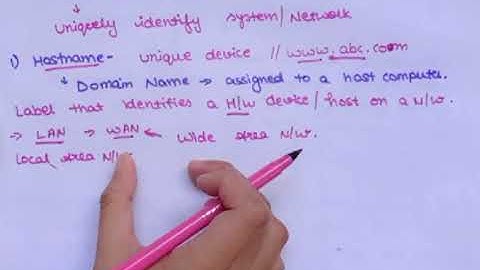 ↓
Uniquely identify system/Network
1) Hostname - unique device // www.abc.com
↓ Domain Name → assigned to a host computer.
Label that identifies a H/W device/host on a N/W.
→ LAN → WAN ← Wide area N/W.
Local area N/W